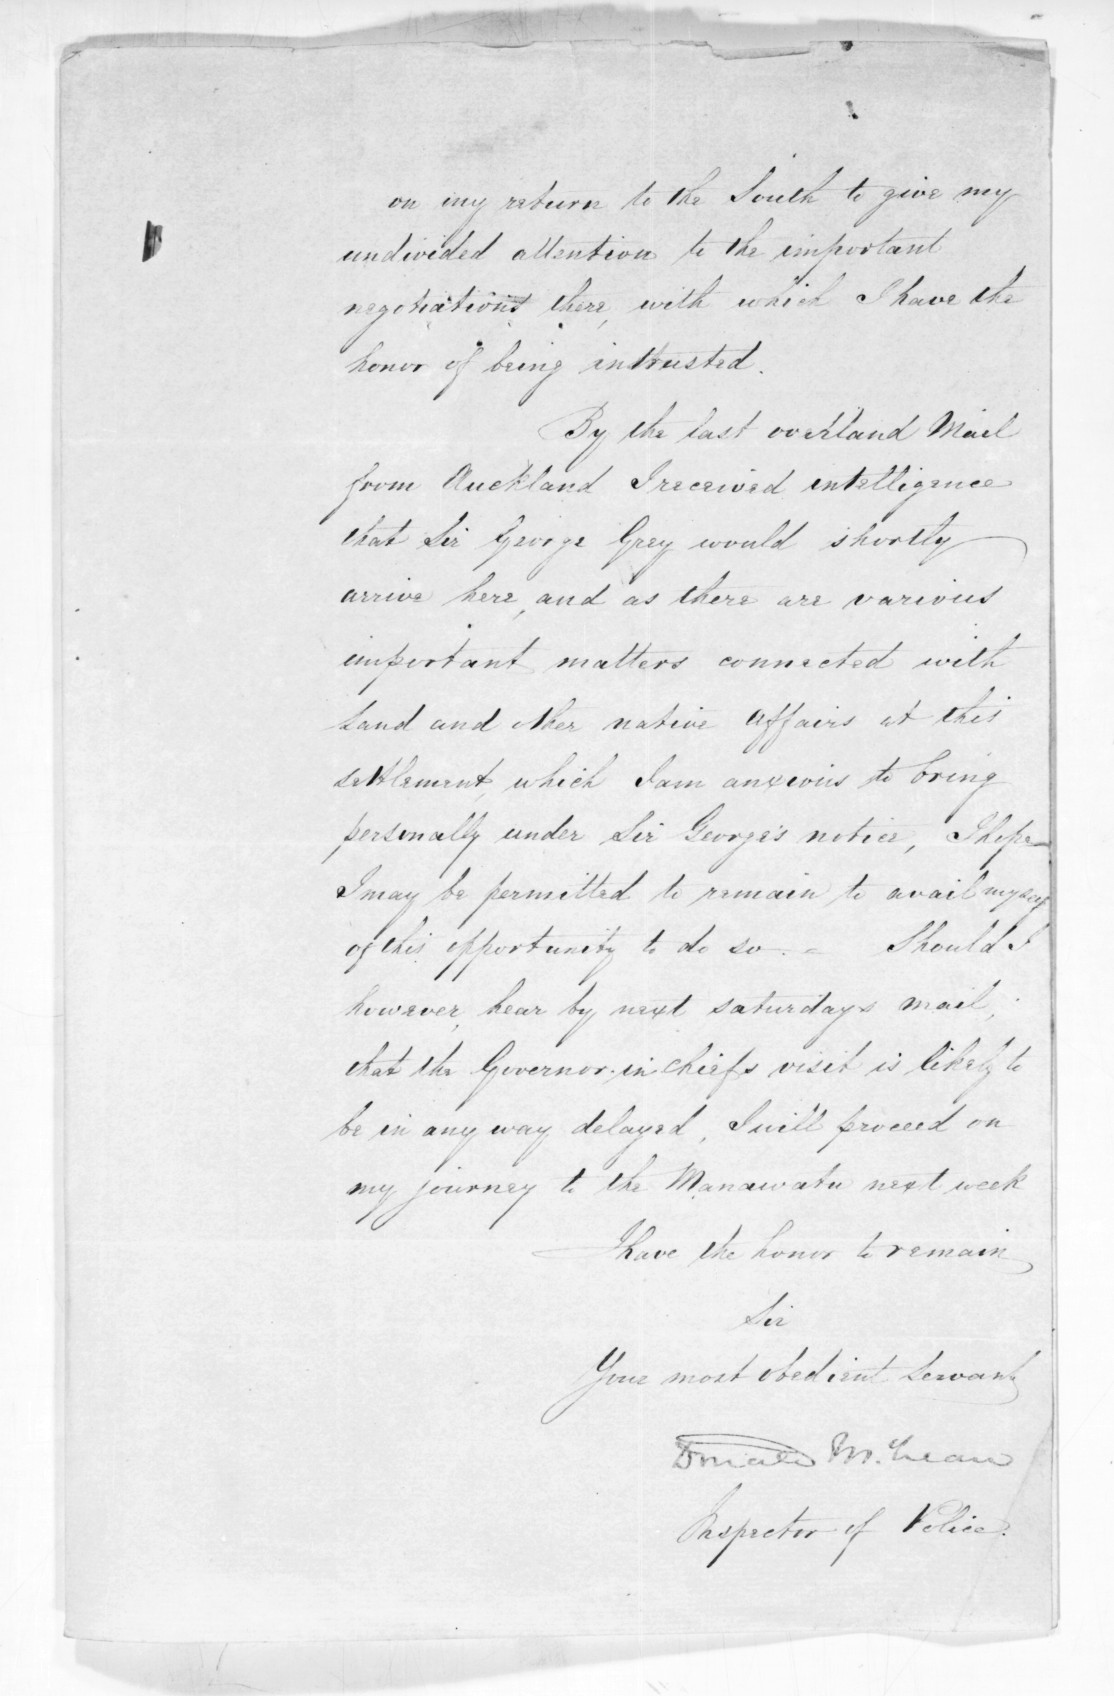 on my return to the South to give my
undivided attention to the important
negotiations there, with which I have the
honor of being intrusted.
By the last overland Mail
from Auckland I received intelligence
that Sir George Grey would shortly
arrive here, and as there are various
important matters connected with
Land and other native affairs at this
settlement, which I am anxious to bring
personally under Sir George's notice, I hope
I may be permitted to remain to avail myself
of this opportunity to do so. - Should I
however, hear by next saturdays mail,
that the Governor-in-chiefs visit is likely to
be in any way delayed, I will proceed on
my journey to the Manawatu next week
I have the honor to remain
Sir
Your most obedient Servant
Donald McLean
Inspector of Police.